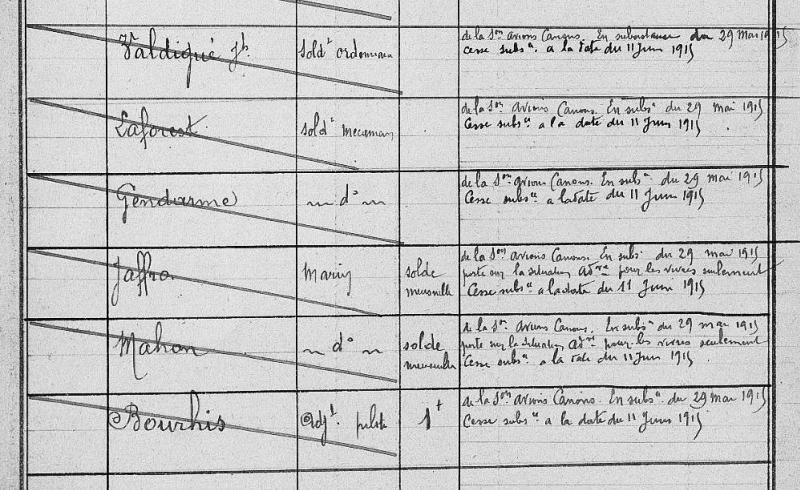 Valdiguié Jh. Sold^t ordonnance de la S^on avions Canons. En subsistance du 29 Mai 1915
Cesse subs^ce a la date du 11 Juin 1915
Laforest Sold^t mecanicien de la S^on avions Canons. En subs^ce du 29 mai 1915
Cesse subs^ce a la date du 11 Juin 1915
Gendarme — d° — de la S^on avions Canons. En subs^ce du 29 mai 1915
Cesse subs^ce a la date du 11 Juin 1915
Jaffro Marin solde mensuelle de la S^on avions Canons. En subs^ce du 29 mai 1915
porte sur la situation ad^ve pour les vivres seulement
Cesse subs^ce a la date du 11 Juin 1915
Mahon — d° — solde mensuelle de la S^on avions Canons. En subs^ce du 29 mai 1915
porte sur la situation ad^ve pour les vivres seulement
Cesse subs^ce a la date du 11 Juin 1915
Bourhis Adj^t pilote de la S^on avions Canons. En subs^ce du 29 mai 1915
Cesse subs^ce a la date du 11 Juin 1915